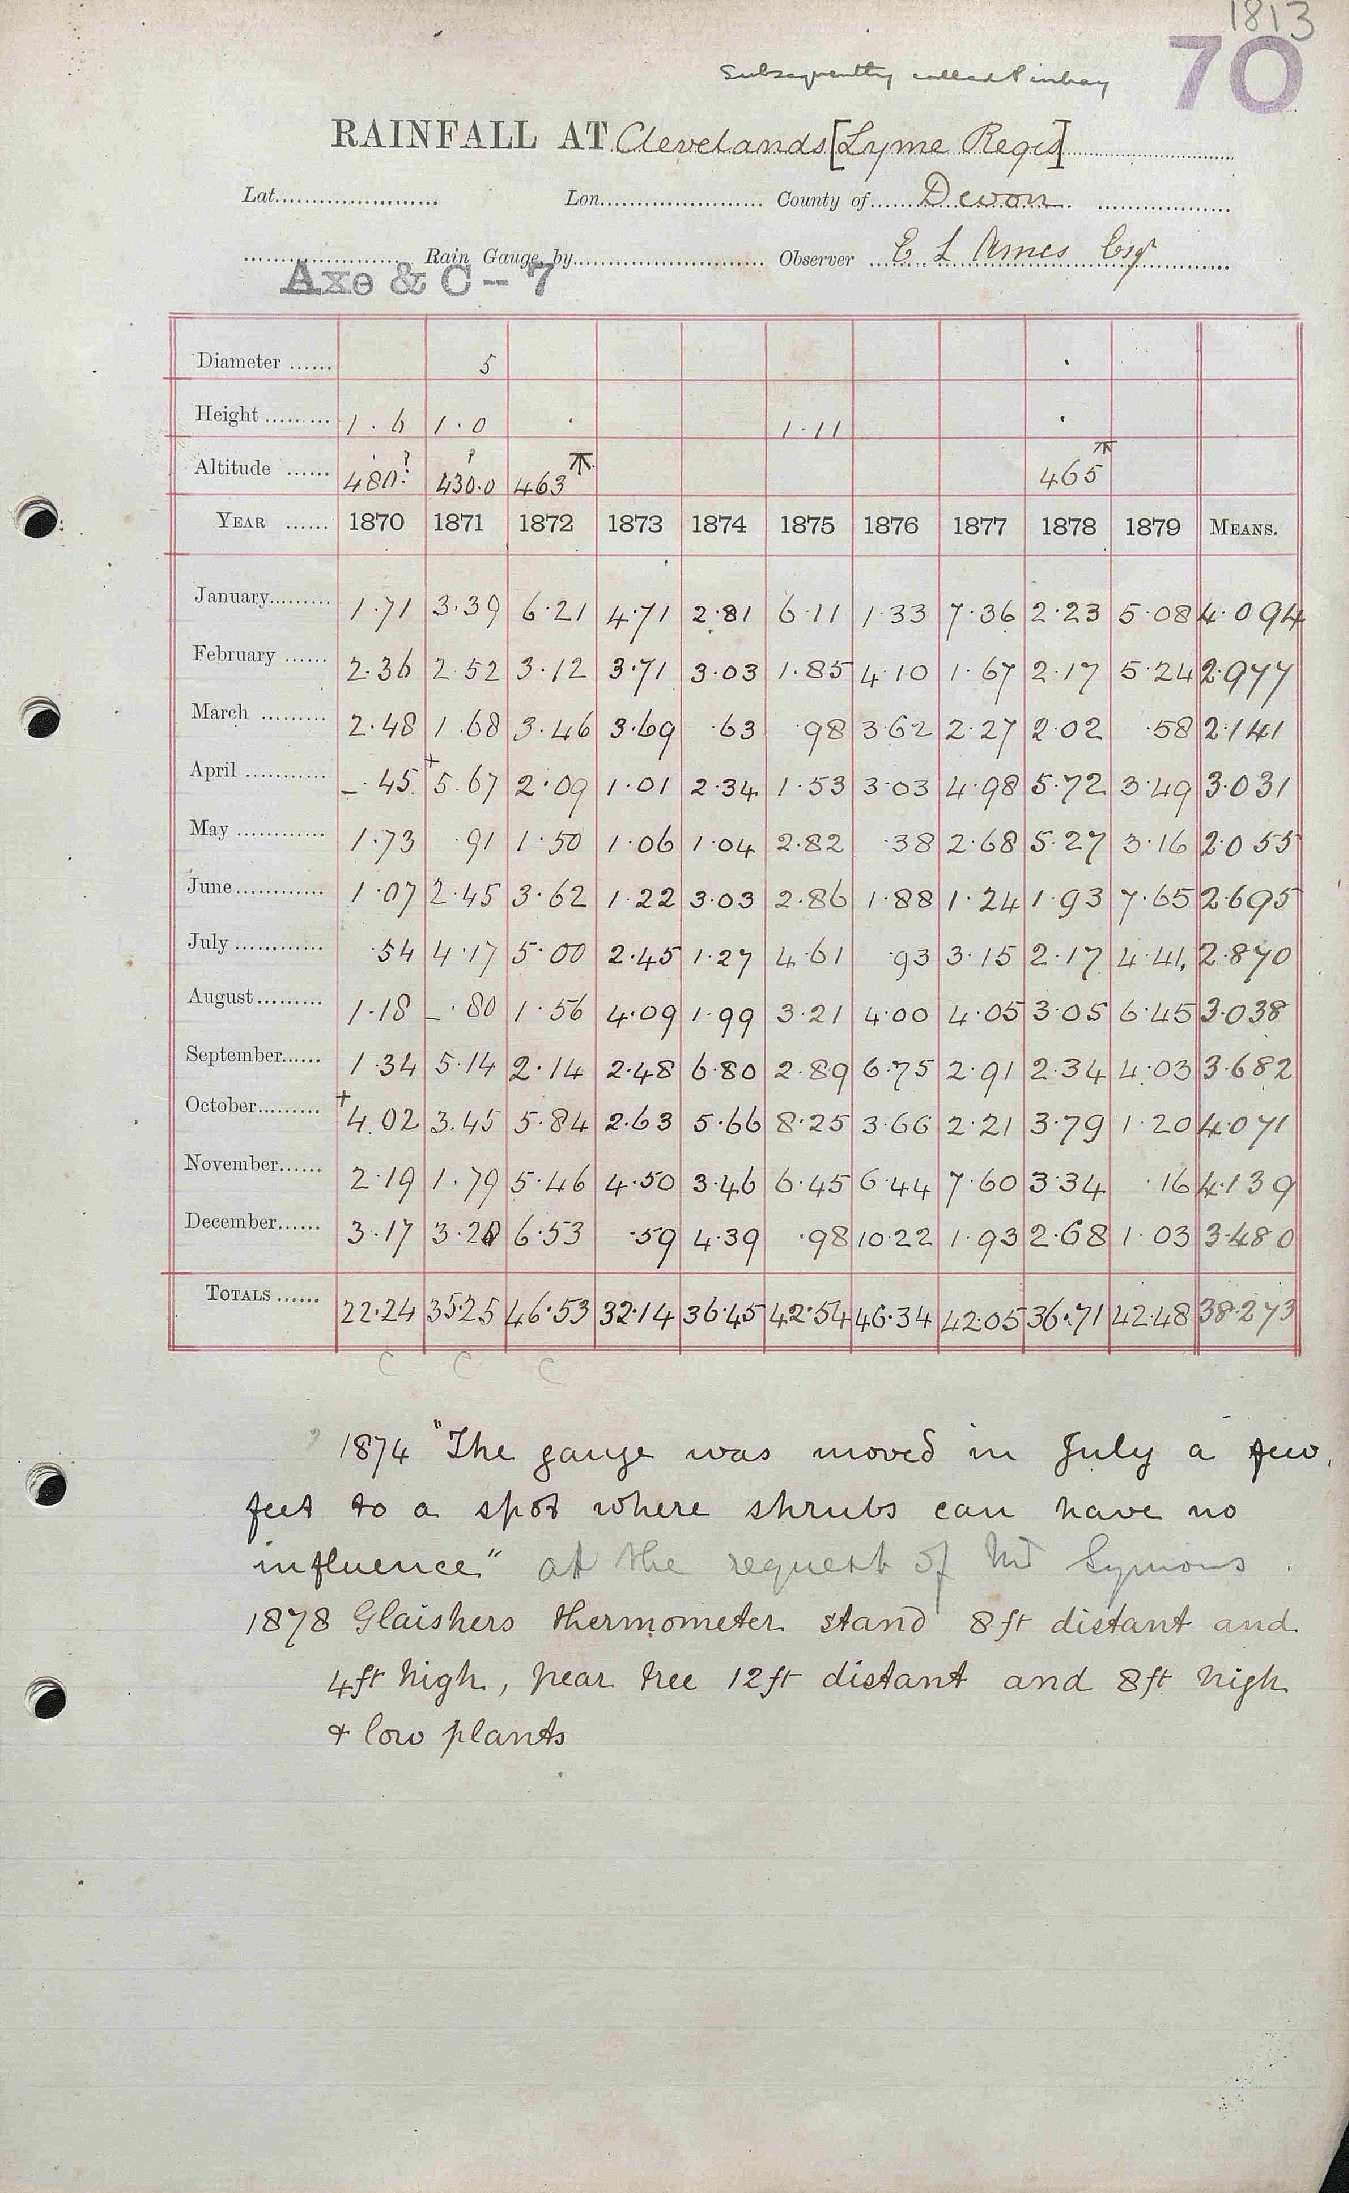 1813
70
Subsequently called Pinhay
RAINFALL AT Clevelands [Lyme Regis]
Lat...................... Lon...................... County of...... Devon ..................
...................... Rain Gauge by........................... Observer ... E L Ames Esqr
Axe & C - 7
Diameter ...... 5
Height ......... 1.6 1.0 1.11
Altitude ...... 480? 430.0 ? 463 465
YEAR ...... 1870 1871 1872 1873 1874 1875 1876 1877 1878 1879 MEANS.
January......... 1.71 3.39 6.21 4.71 2.81 6.11 1.33 7.36 2.23 5.08 4.094
February ...... 2.36 2.52 3.12 3.71 3.03 1.85 4.10 1.67 2.17 5.24 2.977
March ......... 2.48 1.68 3.46 3.69 .63 .98 3.62 2.27 2.02 .58 2.141
April ............ - .45 + 5.67 2.09 1.01 2.34 1.53 3.03 4.98 5.72 3.49 3.031
May ............ 1.73 .91 1.50 1.06 1.04 2.82 .38 2.68 5.27 3.16 2.055
June............ 1.07 2.45 3.62 1.22 3.03 2.86 1.88 1.24 1.93 7.65 2.695
July ............ .54 4.17 5.00 2.45 1.27 4.61 .93 3.15 2.17 4.41 2.870
August......... 1.18 - .80 1.56 4.09 1.99 3.21 4.00 4.05 3.05 6.45 3.038
September...... 1.34 5.14 2.14 2.48 6.80 2.89 6.75 2.91 2.34 4.03 3.682
October......... + 4.02 3.45 5.84 2.63 5.66 8.25 3.66 2.21 3.79 1.20 4.071
November...... 2.19 1.79 5.46 4.50 3.46 6.45 6.44 7.60 3.34 .16 4.139
December...... 3.17 3.28 6.53 .59 4.39 .98 10.22 1.93 2.68 1.03 3.480
TOTALS ...... 22.24 35.25 46.53 32.14 36.45 42.54 46.34 42.05 36.71 42.48 38.273
C C C
1874 "The gauge was moved in July a few
feet to a spot where shrubs can have no
influence" at the request of Mr Symons
1878 Glaishers thermometer stand 8ft distant and
4ft high, pear tree 12ft distant and 8ft high
& low plants